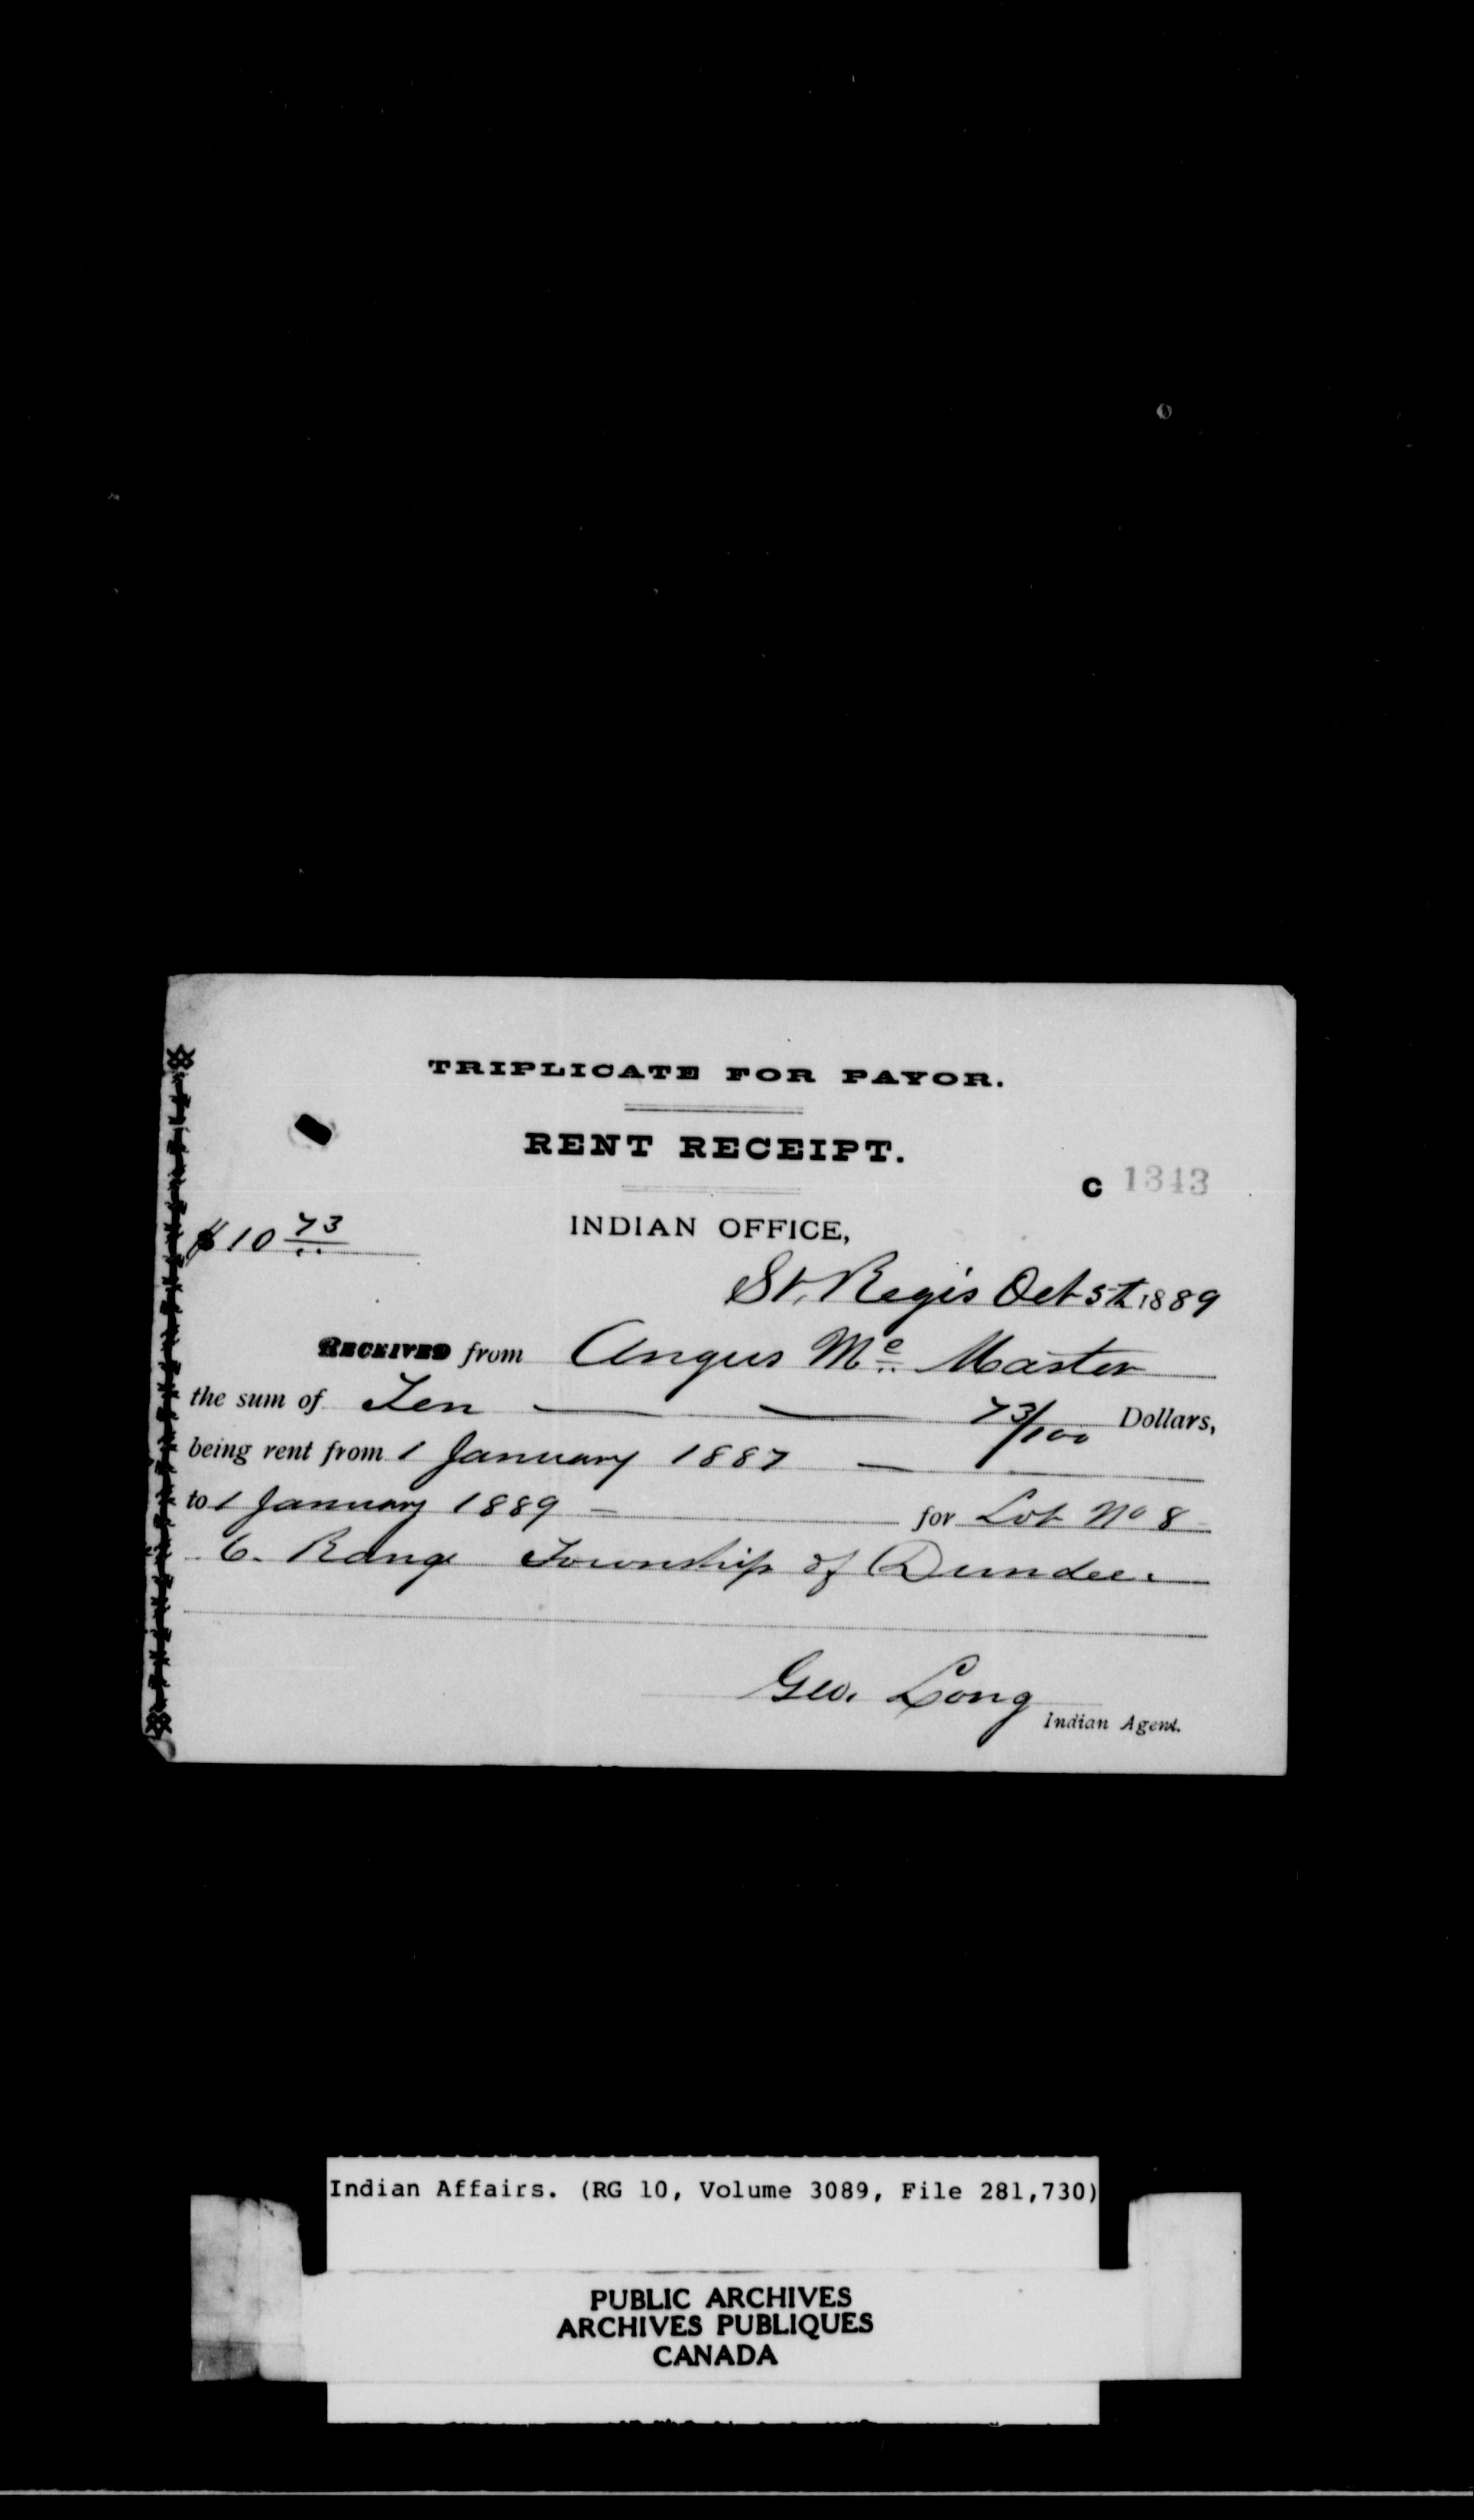 TRIPLICATE FOR PAYOR.
RENT RECEIPT.
C 1343
$10 73/..
INDIAN OFFICE,
St. Regis Oct 5th 1889
RECEIVED from Angus Mc Master
the sum of Ten — — 73/100 Dollars,
being rent from 1 January 1887 —
to 1 January 1889 – for Lot No 8
6. Range Township of Dundee.
Geo. Long
Indian Agent.
Indian Affairs. (RG 10, Volume 3089, File 281,730)
PUBLIC ARCHIVES
ARCHIVES PUBLIQUES
CANADA